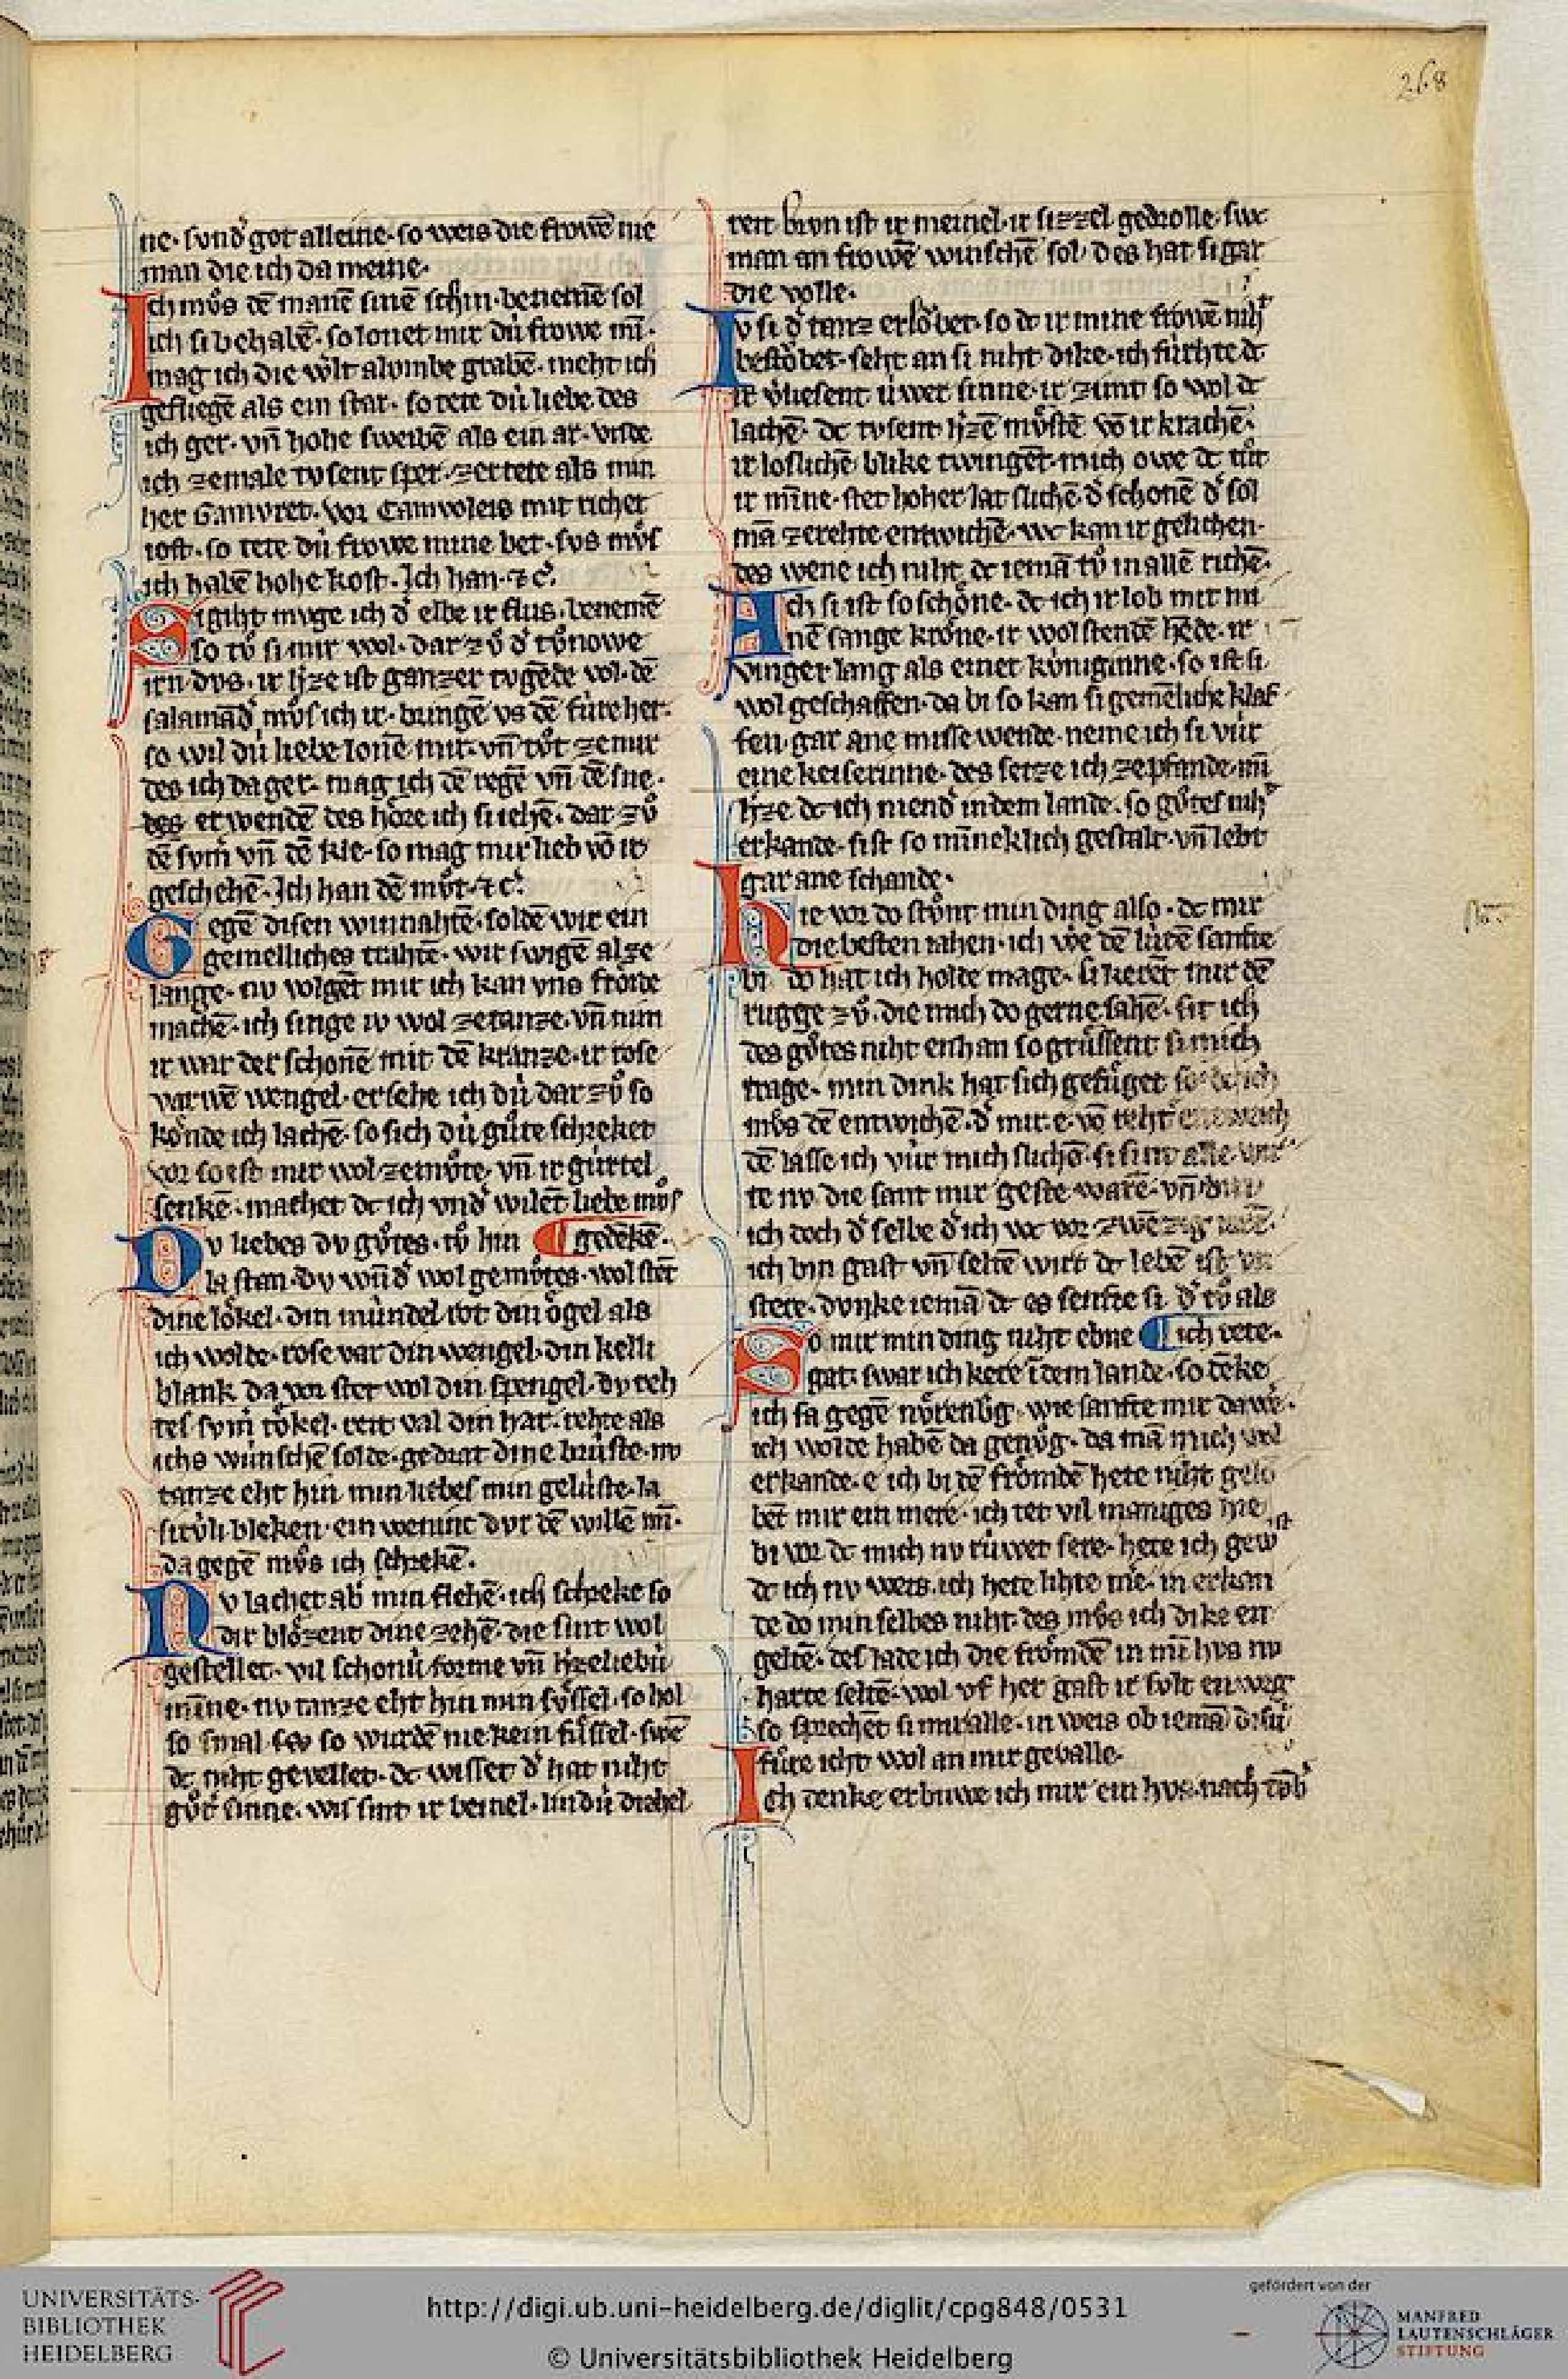 268
ne· svnd͛ got alleine· so weis die frowē nie
man die ich da meine·
Ich mv̊s dē manē sinē schin· benemē sol
ich si behabē· so lonet mir dv́ frowe mī·
mag ich die wͤlt al vmbe grabē· meht ich
gefliegē als ein star· so tete dv́ liebe des
ich ger· vn̄ hohe sweibē als ein ar· vnde
ich zemale tvsent sper· zertete als min
her Gamvret· vor Camvoleis mit richer
iost· so tete dv́ frowe mine bet· svs mv̊s
ich habē hohe kost· Ich han· ⁊c̾·
Si giht mvge ich d͛ elbe ir flus· benemē
so tv̊ si mir wol· dar zv̊ d͛ tv̊nowe
irn dvs· ir h͛ze ist ganzer tvgēde vol· dē
salamād͛ mv̊s ich ir· bringē vs dē fúre her·
so wil dv́ liebe lonē mir· vn̄ tv̊t ze mir
des ich da ger· mag ich dē regē vn̄ dē sne·
des erwendē des hôre ich si iehē· dar zv̊
dē svm͛ vn̄ dē kle· so mag mir lieb vō ir
geschehē· Ich han dē mv̊t· ⁊c̾·
Gegē disen winnahtē· soldē wir ein
gemelliches trahtē· wir swigē al ze
lange· nv volgēt mir ich kan vns frôide
machē· ich singe iv wol ze tanze· vn̄ nim
ir war der schonē mit dē kranze· ir rose
varwē wengel· ersehe ich dv́ dar zv̊ so
kônde ich lachē· so sich dv́ gůte schreket
vor so est mir wol ze mv̊te· vn̄ ir gúrtel
senkē· machet dc ich vnd͛ wilēt liebe mv̊s
Dv liebes dv gv̊tes· tv̊ hin ¶ gedēkē·
la stan· dv wn̄d͛ wol gemv̊tes· wol stēt
dine lôkel· din múndel rot din ôgel als
ich wolde· rose var din wengel· din kelli
blank da vor stet wol din spengel· dv reh
tes svm͛ tôkel· reit val din har· rehte als
ichs wúnschē solde· gedrat dine brúste· nv
tanze eht hin min liebes min gelúste· la
sitv́li bleken· ein weninc dvr dē willē mī·
da gegē mv̊s ich schrekē·
Nv lachet ab͛ min flehē· ich schreke so
dir blôzent dine zehē· die sint wol
gestellet· vil schonú forme vn̄ h͛zeliebú
mīne· nv tanze eht hin min fv̊ssel· so hol
so smal es so wurdē nie kein fússel· swē
dc niht gevellet· dc wisset d͛ hat niht
gv̊t͛ sinne· wis sint ir beinel· lindú diehel
reit brvn ist ir meinel· ir sizzel gedrolle· swc
man an frowē wúnschē sol· des hat si gar
die volle·
Iv si d͛ tanz erlôbet· so dc ir mine frowē niht
bestôbet· seht an si niht dike· ich fúrhte dc
ir v͛liesent úwer sinne· ir zimt so wol dc
lachē· dc tvsent h͛zē mv̊stē vō ir krachē·
ir loslichē blike twingēt mich owe dc tv̊t
ir mīne· stet hoher lat slichē d͛ schonē d͛ sol
mā ze rehte entwichē· wc kan ir gelichen·
des wene ich niht dc iemā tv̊ in allē richē·
Ach si ist so schône· dc ich ir lob mit mi
nē sange krône· ir wol stendē hēde· ir
vinger lang als einer kúniginne· so ist si
wol geschaffen· da bi so kan si gemēliche klaf
fen· gar ane missewende· neme ich si vúr
eine keiserinne· des setze ich ze pfande· mī
h͛ze dc ich niend͛ in dem lande· so gv̊tes niht
erkande· sist so mīneklich gestalt· vn̄ lebt
gar ane schande·
Hie vor do stv̊nt min ding also· dc mir
die besten iahen· ich wͤe dē lútē sanfte
bi· do hat ich holde mage· si kerēt mir dē
rugge zv̊· die mich do gerne sahē· sit ich
des gv̊tes niht enhan so grússent si mich
trage· min dink hat sich gefúget so dc ich
mv̊s dē entwichē· d͛ mir e· vō reht
dē lasse ich vúr mich slichē· si sint alle
te nv die sant mir geste warē· vn̄ bin
ich doch d͛ selbe d͛ ich wc vor zwēzig iarē·
ich bin gast vn̄ seltē wirt dc lebē ist vn
stete· dvnke iemā dc es senfte si d͛ tv̊ als
So mir min ding niht ebne ¶ ich tete·
gat· swar ich kere ī dem lande· so dēke
ich sa gegē nv̊renb͛g· wie sanfte mir da wͤe·
ich wolde habē da genv̊g· da mā mich wol
erkande· e ich bi dē frômdē hete niht gelô
bēt mir ein mere· ich tet vil maniges hie
bi vor dc mich nv rúwet sere· hete ich gewist
dc ich nv weis· ich hete lihte me· in erkan
te do min selbes niht· des mv̊s ich dike en
geltē· des lade ich die frômdē in mī hvs nv
harte seltē· wol vf her gast ir svlt enweg
so sprechēt si mir alle· in weis ob iemā disú
fûre icht wol an mir gevalle·
Ich denke erbuwe ich mir ein hvs· nach tvb͛
UNIVERSITÄTS-
BIBLIOTHEK
HEIDELBERG
http://digi.ub.uni-heidelberg.de/diglit/cpg848/0531
© Universitätsbibliothek Heidelberg
gefördert von der
MANFRED
LAUTENSCHLÄGER
STIFTUNG